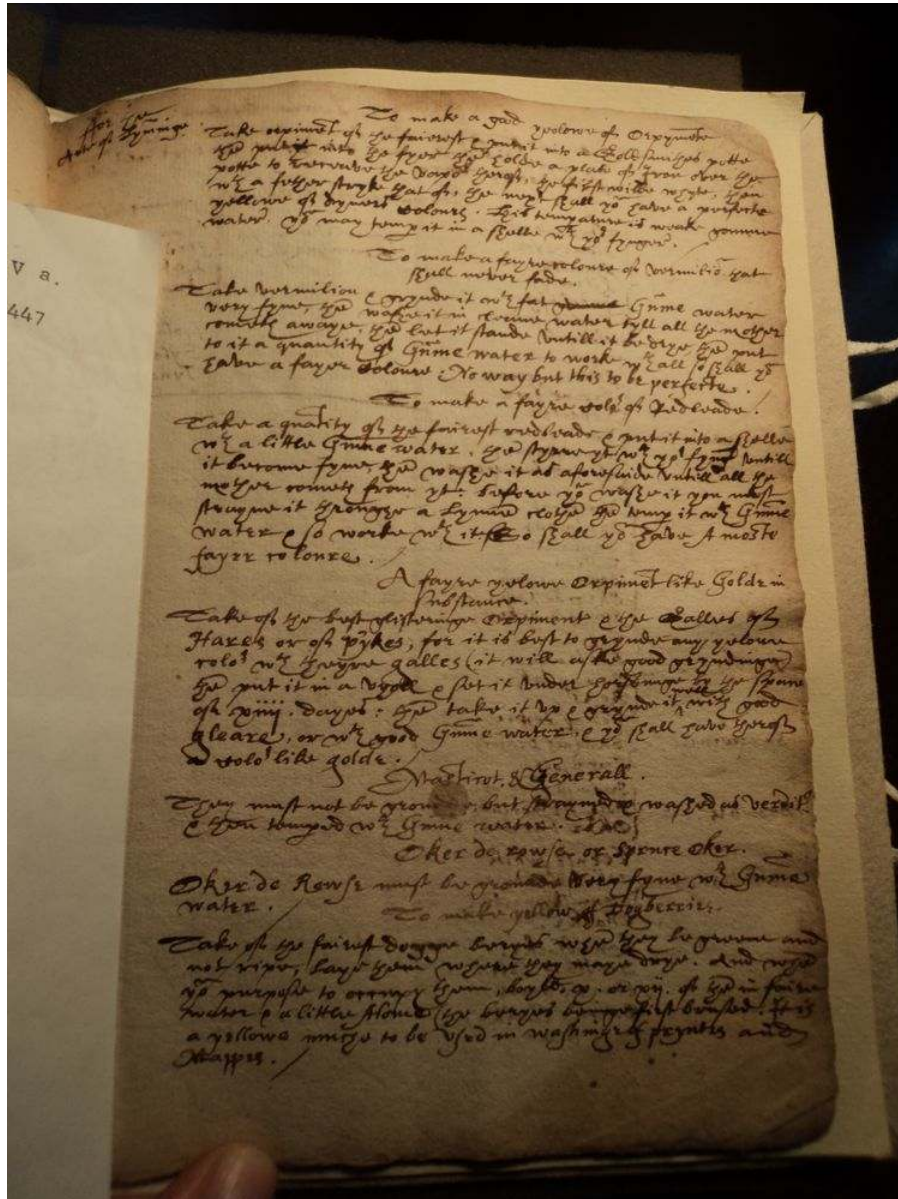 for the
Arte of Lym̄inge
V a.
447
To make a good yeolowe of Orpymēte
Take orpimēt of the fairest & put it into a Gollsmithes potte
thē put it into the fyer thē holde a plate of Iron over the
potte to receave the vapor therof, the first wilbe whyte, then
wth a fether stryke that of, the next shall yo have a perfecte
yellowe of dyvers Colours. This temperature is weake gomme
water. yo may temp it in a shelle wth yor fynger.
To make a fayre coloure of vermiliō that
shall never fade.
Take vermilion & grynde it wth fat Gūme water
very fyne, thē washe it in cleane water tyll all the mother
cometh awaye, thē let it stande untill it be drye thē put
to it a quantity of Gūme water to worke wth all so shall yo
have a fayer Coloure. No way but this to be perfecte.
To make a fayre Color of Redleade.
Take a quātity of the fairest redleade & put it into a shelle
wth a little Gūme water, thē styrre yt wth yor fynger untill
it become fyne, thē washe it as aforesaide untill all the
mother cometh from yt: before yo washe it you must
strayne it throughe a Lynnē clothe thē temp it wth Gūme
water & so worke wth it So shall yo have A moste
fayre coloure.
A fayre yelowe Orpimēt like Golde in
substance.
Take of the best glisteringe Orpiment & the Galles of
Hares or of pykes, for it is best to grynde any yelowe
color wth theyre galles (it will aske good gryndinge)
thē put it in a vyoll & set it under by the space
of xiiij. dayes: thē take it up & grynde it well with good
gleare, or wth good Gūme water, & yo shall have therof
a color like golde.
Masticot, & Generall.
They must not be grounde, but strayned & washed as verdit
& then temped wth Gūme water.
Oker de rowse or Spruce Oker.
Oker de Rewse must be grounde very fyne wth Gūme
water.
To make yellow of Dogberries.
Take of the fairest dogge beryes whē they be greene and
not ripe, laye them where they maye drye. And whē
yo purpose to occupy them, boyle x. or xij. of thē in faire
water & a little Alome (the beryes beinge first brused. It is
a yellowe muche to be used in washinge of and
Mappes.